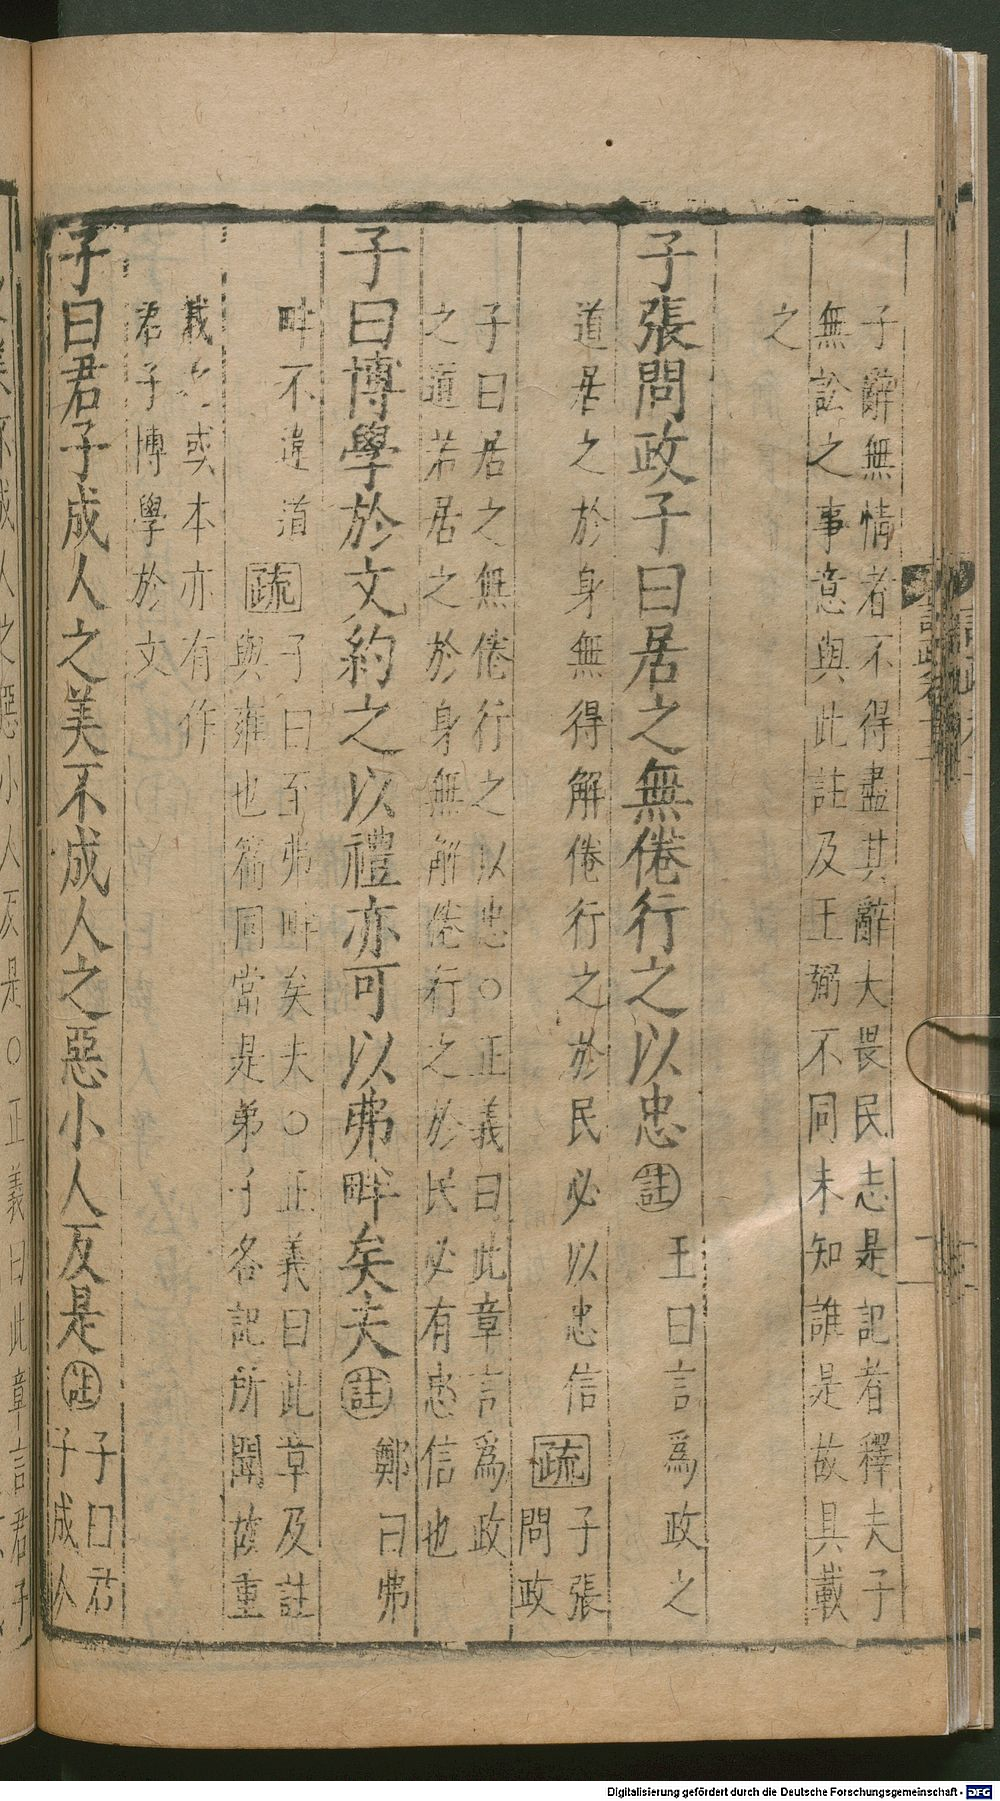 子辭無情者不得盡其辭大畏民志是記者釋夫子
無訟之事意與此註及王弼不同未知誰是故具載
之
子張問政子曰居之無倦行之以忠註王曰言爲政之
道居之於身無得解倦行之於民必以忠信疏子張
問政
子曰居之無倦行之以忠○正義曰此章言爲政
之道若居之於身無解倦行之於民必有忠信也
子曰博學於文約之以禮亦可以弗畔矣夫註鄭曰弗
畔不違道疏子曰至弗畔矣夫○正義曰此章及註
與雍也篇同當是弟子各記所聞故重
載之或本亦有作
君子博學於文
子曰君子成人之美不成人之惡小人反是註子曰君
子成人
人之惡小人反是○正義曰此章言君子
Digitalisierung gefördert durch die Deutsche Forschungsgemeinschaft - DFG